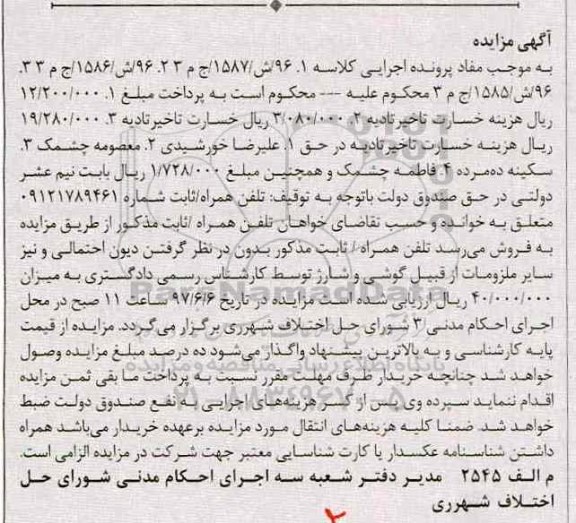 آگهی مزایده
به موجب مفاد پرونده اجرایی کلاسه ۱. ۹۶/ش/۱۵۸۷/ج م ۲ ۳. ۹۶/ش/۱۵۸۶/ج م ۳ ۳.
۹۶/ش/۱۵۸۵/ج م ۳ محکوم علیه --- محکوم است به پرداخت مبلغ ۱. ۱۲/۲۰۰/۰۰۰
ریال هزینه خسارت تاخیرتادیه ۲. ۳/۰۸۰/۰۰۰ ریال خسارت تاخیرتادیه ۳. ۱۹/۲۸۰/۰۰۰
ریال هزینه خسارت تاخیرتادیه در حق ۱. علیرضا خورشیدی ۲. معصومه چشمک ۳.
سکینه ده‌مرده ۴. فاطمه چشمک و همچنین مبلغ ۱/۷۲۸/۰۰۰ ریال بابت نیم عشر
دولتی در حق صندوق دولت باتوجه به توقیف: تلفن همراه/ثابت شماره ۰۹۱۲۱۷۸۹۴۶۱
متعلق به خوانده و حسب تقاضای خواهان تلفن همراه /ثابت مذکور از طریق مزایده
به فروش می‌رسد تلفن همراه / ثابت مذکور بدون در نظر گرفتن دیون احتمالی و نیز
سایر ملزومات از قبیل گوشی و شارژ توسط کارشناس رسمی دادگستری به میزان
۴۰/۰۰۰/۰۰۰ ریال ارزیابی شده است مزایده در تاریخ ۹۷/۶/۶ ساعت ۱۱ صبح در محل
اجرای احکام مدنی ۳ شورای حل اختلاف شهرری برگزار می‌گردد. مزایده از قیمت
پایه کارشناسی و به بالاترین پیشنهاد واگذار می‌شود ده درصد مبلغ مزایده وصول
خواهد شد چنانچه خریدار ظرف مهلت مقرر نسبت به پرداخت ما بقی ثمن مزایده
اقدام ننماید سپرده وی پس از کسر هزینه‌های اجرایی به نفع صندوق دولت ضبط
خواهد شد. ضمنا کلیه هزینه‌های انتقال مورد مزایده برعهده خریدار می‌باشد همراه
داشتن شناسنامه عکسدار یا کارت شناسایی معتبر جهت شرکت در مزایده الزامی است.
م الف ۲۵۴۵ مدیر دفتر شعبه سه اجرای احکام مدنی شورای حل
اختلاف شهرری